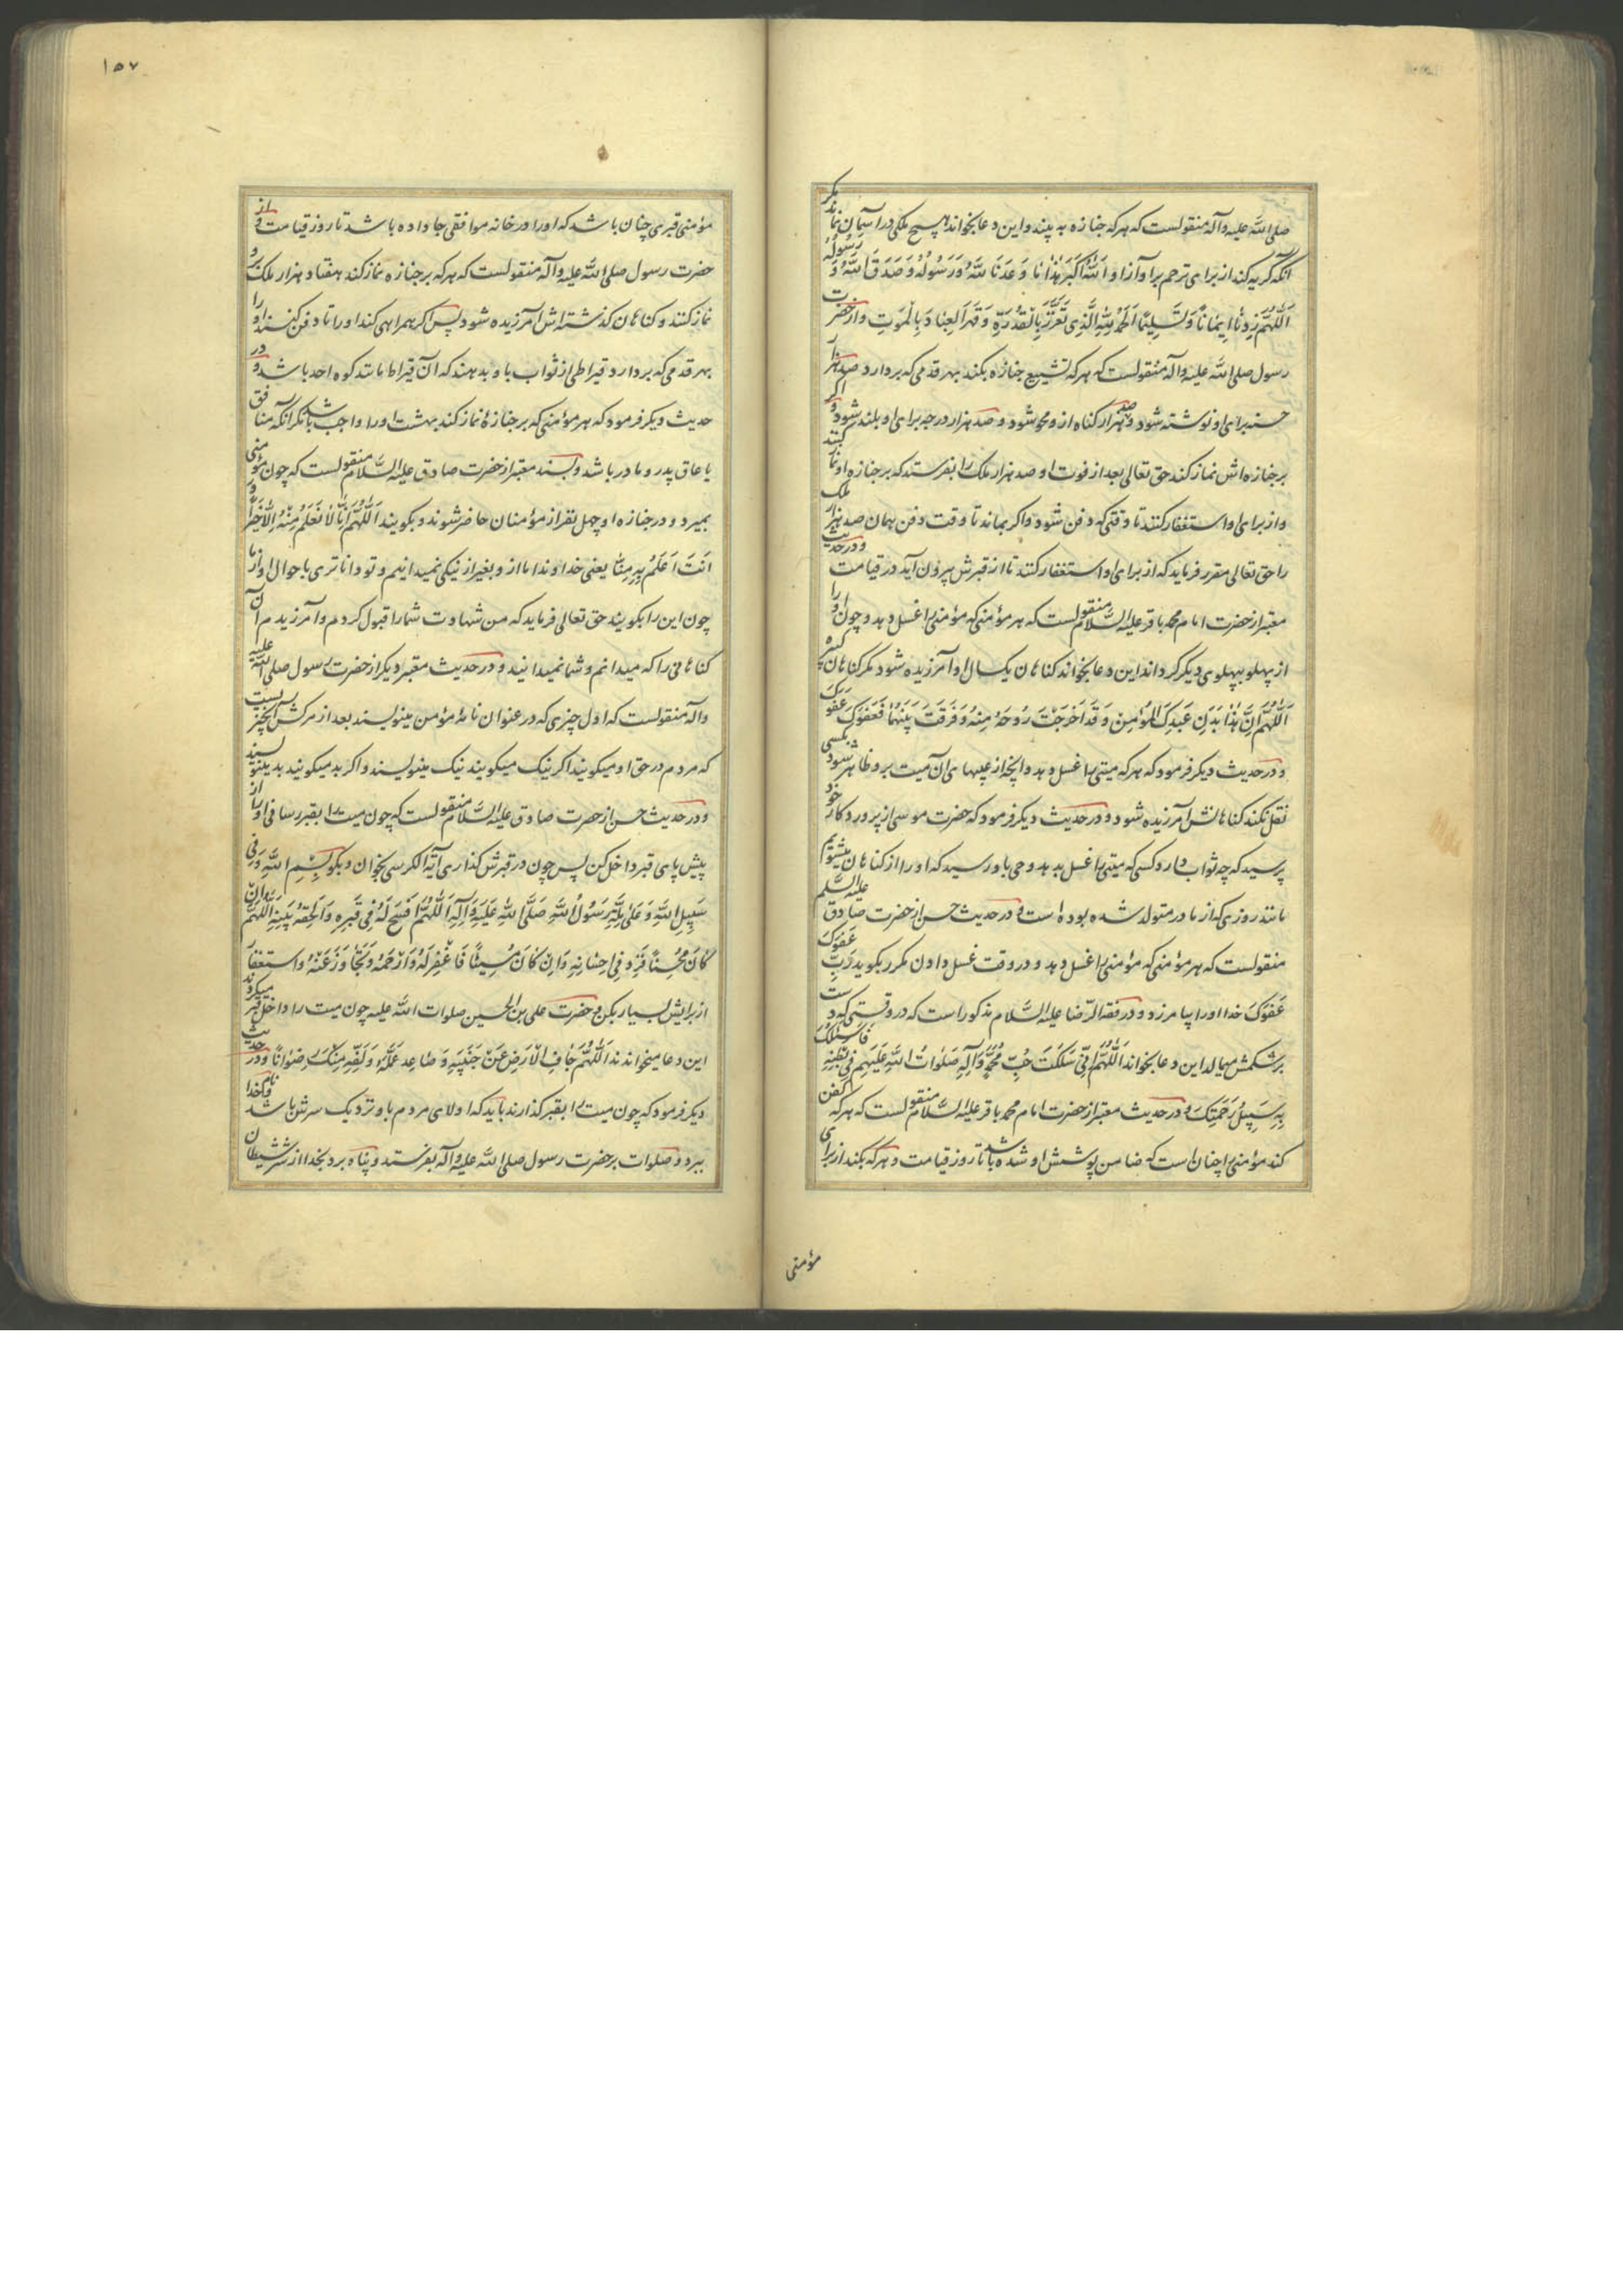 صلی الله علیه وآله منقولست که هر که جنازه به بیند و این دعا بخواند هیچ ملکی در آسمان نماند مکر
آنکه کریه کند از برای ترحم بر او آواز او اَللّٰهُ اَکْبَرُ هٰذٰا مٰا وَعَدَنَا اللّٰهُ وَرَسُولُهُ وَصَدَقَ اللّٰهُ وَ رَسُولُهُ
اَللّٰهُمَّ زِدْنٰا اِیمٰانًا وَ تَسْلِیمًا اَلْحَمْدُ لِلّٰهِ الَّذِی تَعَزَّزَ بِالْقُدْرَةِ وَ قَهَرَ الْعِبٰادَ بِالْمَوْتِ و از حضرت
رسول صلی الله علیه وآله منقولست که هر که تشییع جنازه بکند بهر قدمی که بردارد صد هزار
حسنه برای او نوشته شود و صد هزار کناه از او محو شود و صد هزار درجه برای او بلند شود و اکر
بر جنازه اش نماز کند حق تعالی بعد از فوت او صد هزار ملک را بفرستد که بر جنازه او نماز کنند
و از برای او استغفار کنند تا وقتی که دفن شود و اکر بماند تا وقت دفن همان صد هزار ملک
را حق تعالی مقرر فرماید که از برای او استغفار کنند تا از قبرش بیرون آید در قیامت و در حدیث
معتبر از حضرت امام محمد باقر علیه السّلام منقولست که هر مؤمنی که مؤمنی را غسل دهد و چون او را
از پهلو بپهلوی دیکر کرداند این دعا بخواند کناهان یکسال او آمرزیده شود مکر کناهان کبیره
اَللّٰهُمَّ اِنَّ هٰذٰا بَدَنُ عَبْدِکَ الْمُؤْمِنِ وَ قَدْ اَخْرَجْتَ رُوحَهُ مِنْهُ وَ فَرَّقْتَ بَیْنَهُمٰا فَعَفْوَکَ عَفْوَکَ
و در حدیث دیکر فرمود که هر که میتی را غسل دهد و آنچه از عیبهای آن میت بر او ظاهر شود بکسی
نقل نکند کناهانش آمرزیده شود و در حدیث دیکر فرمود که حضرت موسی از پروردکار خود
پرسید که چه ثواب دارد کسی که میتی را غسل بدهد وحی باو رسید که او را از کناهان میشویم
مانند روزی که از مادر متولد شده بوده است و در حدیث حسن از حضرت صادق علیه السلم
منقولست که هر مؤمنی که مؤمنی را غسل دهد و در وقت غسل دادن مکرر بکوید رَبِّ عَفْوَکَ
عَفْوَکَ خدا او را بیامرزد و در فقه الرّضا علیه السّلام مذکور است که در وقتی که دست
بر شکمش میمالد این دعا بخواند اَللّٰهُمَّ اِنِّی سَلَکْتُ حُبَّ مُحَمَّدٍ وَآلِهِ صَلَوٰاتُ اللّٰهِ عَلَیْهِمْ فِی بَطْنِهِ فَاسْلُکْ
بِهِ سَبِیلَ رَحْمَتِکَ و در حدیث معتبر از حضرت امام محمد باقر علیه السّلام منقولست که هر که کفن
کند مؤمنی را چنان است که ضامن پوشش او شده باشد تا روز قیامت و هر که بکند از برای
مؤمنی
١٥٧
مؤمنی قبری چنان باشد که او را در خانه موافقی جا داده باشد تا روز قیامت و از
حضرت رسول صلی الله علیه وآله منقولست که هر که بر جنازه نماز کند هفتاد هزار ملک بر او
نماز کنند و کناهان کذشته اش آمرزیده شود پس اکر همراهی کند او را تا دفن کنند او را
بهر قدمی که بردارد قیراطی از ثواب باو بدهند که آن قیراط مانند کوه احد باشد و در
حدیث دیکر فرمود که هر مؤمنی که بر جنازهٔ نماز کند بهشت او را واجب باشد مکر آنکه منافق
یا عاق پدر و مادر باشد و بسند معتبر از حضرت صادق علیه السّلام منقولست که چون مؤمنی
بمیرد و در جنازه او چهل نفر از مؤمنان حاضر شوند و بکویند اَللّٰهُمَّ اِنّٰا لٰا نَعْلَمُ مِنْهُ اِلّٰا خَیْرًا وَ
اَنْتَ اَعْلَمُ بِهِ مِنّٰا یعنی خداوندا ما از او بغیر از نیکی نمیدانیم و تو داناتری باحوال او از ما
چون این را بکویند حق تعالی فرماید که من شهادت شما را قبول کردم و آمرزیدم آن
کناهانی را که میدانم و شما نمیدانید و در حدیث معتبر دیکر از حضرت رسول صلی الله علیه
وآله منقولست که اول چیزی که در عنوان نامهٔ مؤمن مینویسند بعد از مرکش آنچیزیست
که مردم در حق او میکویند اکر نیک میکویند نیک مینویسند و اکر بد میکویند بد مینویسند
و در حدیث حسن از حضرت صادق علیه السّلام منقولست که چون میت را بقبر رسانی او را از
پیش پای قبر داخل کن پس چون در قبرش کذاری آیة الکرسی بخوان و بکو بِسْمِ اللّٰهِ وَ فِی
سَبِیلِ اللّٰهِ وَ عَلیٰ مِلَّةِ رَسُولِ اللّٰهِ صَلَّی اللّٰهُ عَلَیْهِ وَآلِهِ اَللّٰهُمَّ افْسَحْ لَهُ فِی قَبْرِهِ وَ اَلْحِقْهُ بِنَبِیِّهِ اَللّٰهُمَّ اِنْ
کٰانَ مُحْسِنًا فَزِدْ فِی اِحْسٰانِهِ وَ اِنْ کٰانَ مُسِیئًا فَاغْفِرْ لَهُ وَ ارْحَمْهُ وَ تَجٰاوَزْ عَنْهُ و استغفار
از برایش بسیار بکن و حضرت علی بن الحسین صلوات الله علیه چون میت را داخل قبر میکردند
این دعا میخواندند اَللّٰهُمَّ جٰافِ الْاَرْضَ عَنْ جَنْبَیْهِ وَ صٰاعِدْ عَمَلَهُ وَ لَقِّهِ مِنْکَ رِضْوٰانًا و در حدیث
دیکر فرمود که چون میت را بقبر کذارند باید که اولای مردم باو نزدیک سرش باشد و نام خدا
ببرد و صلوات بر حضرت رسول صلی الله علیه وآله بفرستد و پناه برد بخدا از شر شیطان